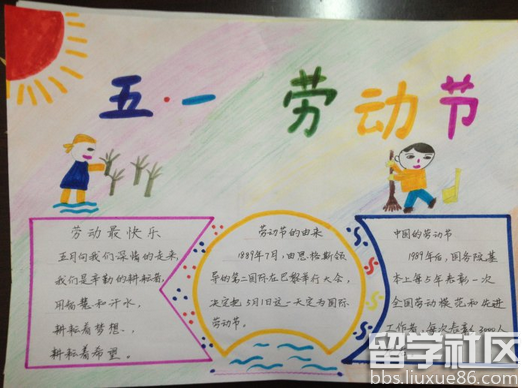 五·一 劳动节
劳动最快乐
五月向我们深情的走来,
我们是辛勤的耕耘者,
用智慧和汗水,
耕耘着梦想.
耕耘着希望。
劳动节的由来
1889年7月,由恩格斯领
导的第二国际在巴黎举行大会,
决定把5月1日这一天定为国际
劳动节。
中国的劳动节
1989年后,国务院基
本上每5年表彰一次
全国劳动模范和先进
工作者,每次表彰3000人
留学社区
bbs.liuxue86.com